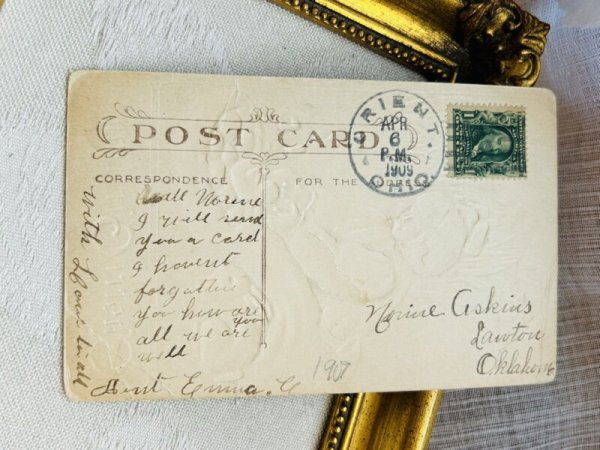 POST CARD
ORIENT.
APR
6
P.M.
1909
OHIO
1
CORRESPONDENCE
FOR THE ADDRESS
Well Norine
I will send
you a card
I havent
forgotten
you how are you
all we are
well
Aunt Emma. C
with Love to all
1907
Norine Askins
Lawton
Oklahoma